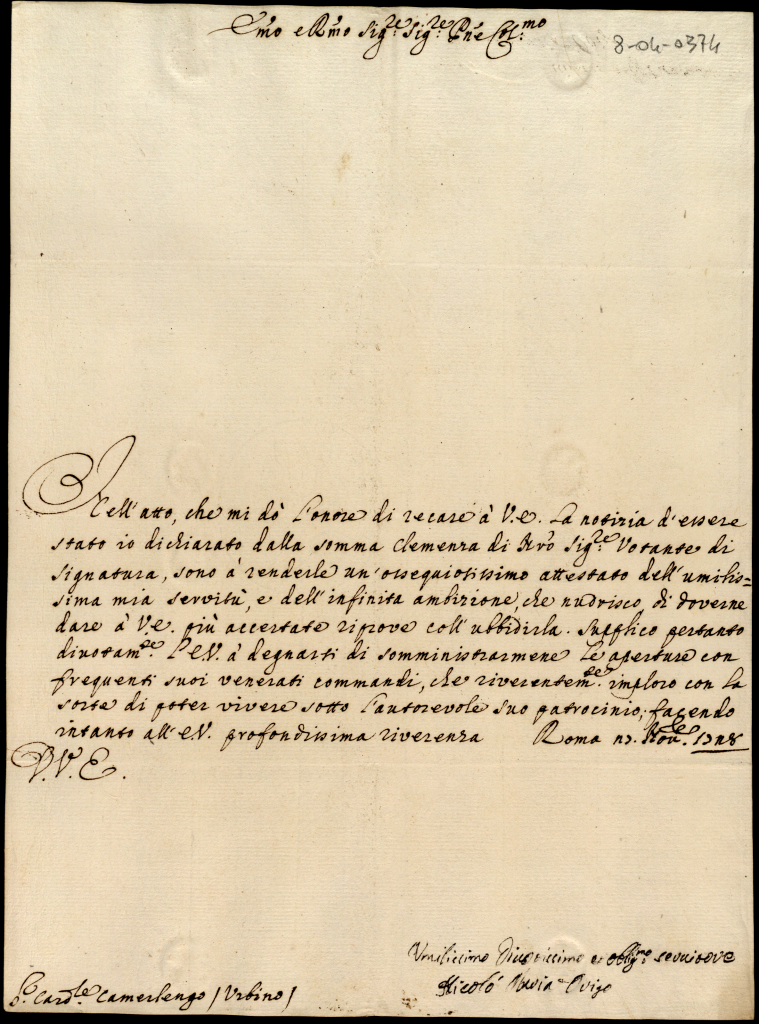 Em̃o e Rm̃o Sig:re Sig:re Pñe Col:mo
8-04-0374
Nell' atto, che mi dò l'onore di recare à V.E. la notizia d'essere
stato io dichiarato dalla somma Clemenza di Nrõ Sig:re Votante di
Signatura, sono à renderle un' ossequiosissimo attestato dell' umilis=
sima mia servitù, e dell' infinita ambizione, che nudrisco, di doverne
dare à V.E. più accertate riprove coll' ubbidirla. Supplico pertanto
divotam:te l'E.V. à degnarsi di somministrarmene le aperture con
frequenti suoi venerati commandi, che riverentem:te imploro con la
sorte di poter vivere sotto l'autorevole suo patrocinio; facendo
intanto all' E.V. profondissima riverenza Roma Nov:re 1728
D. V. E.
Umilissimo Divotissimo et oblig:mo servitore
Nicolò Maria
Card:le Camerlengo / Urbino /